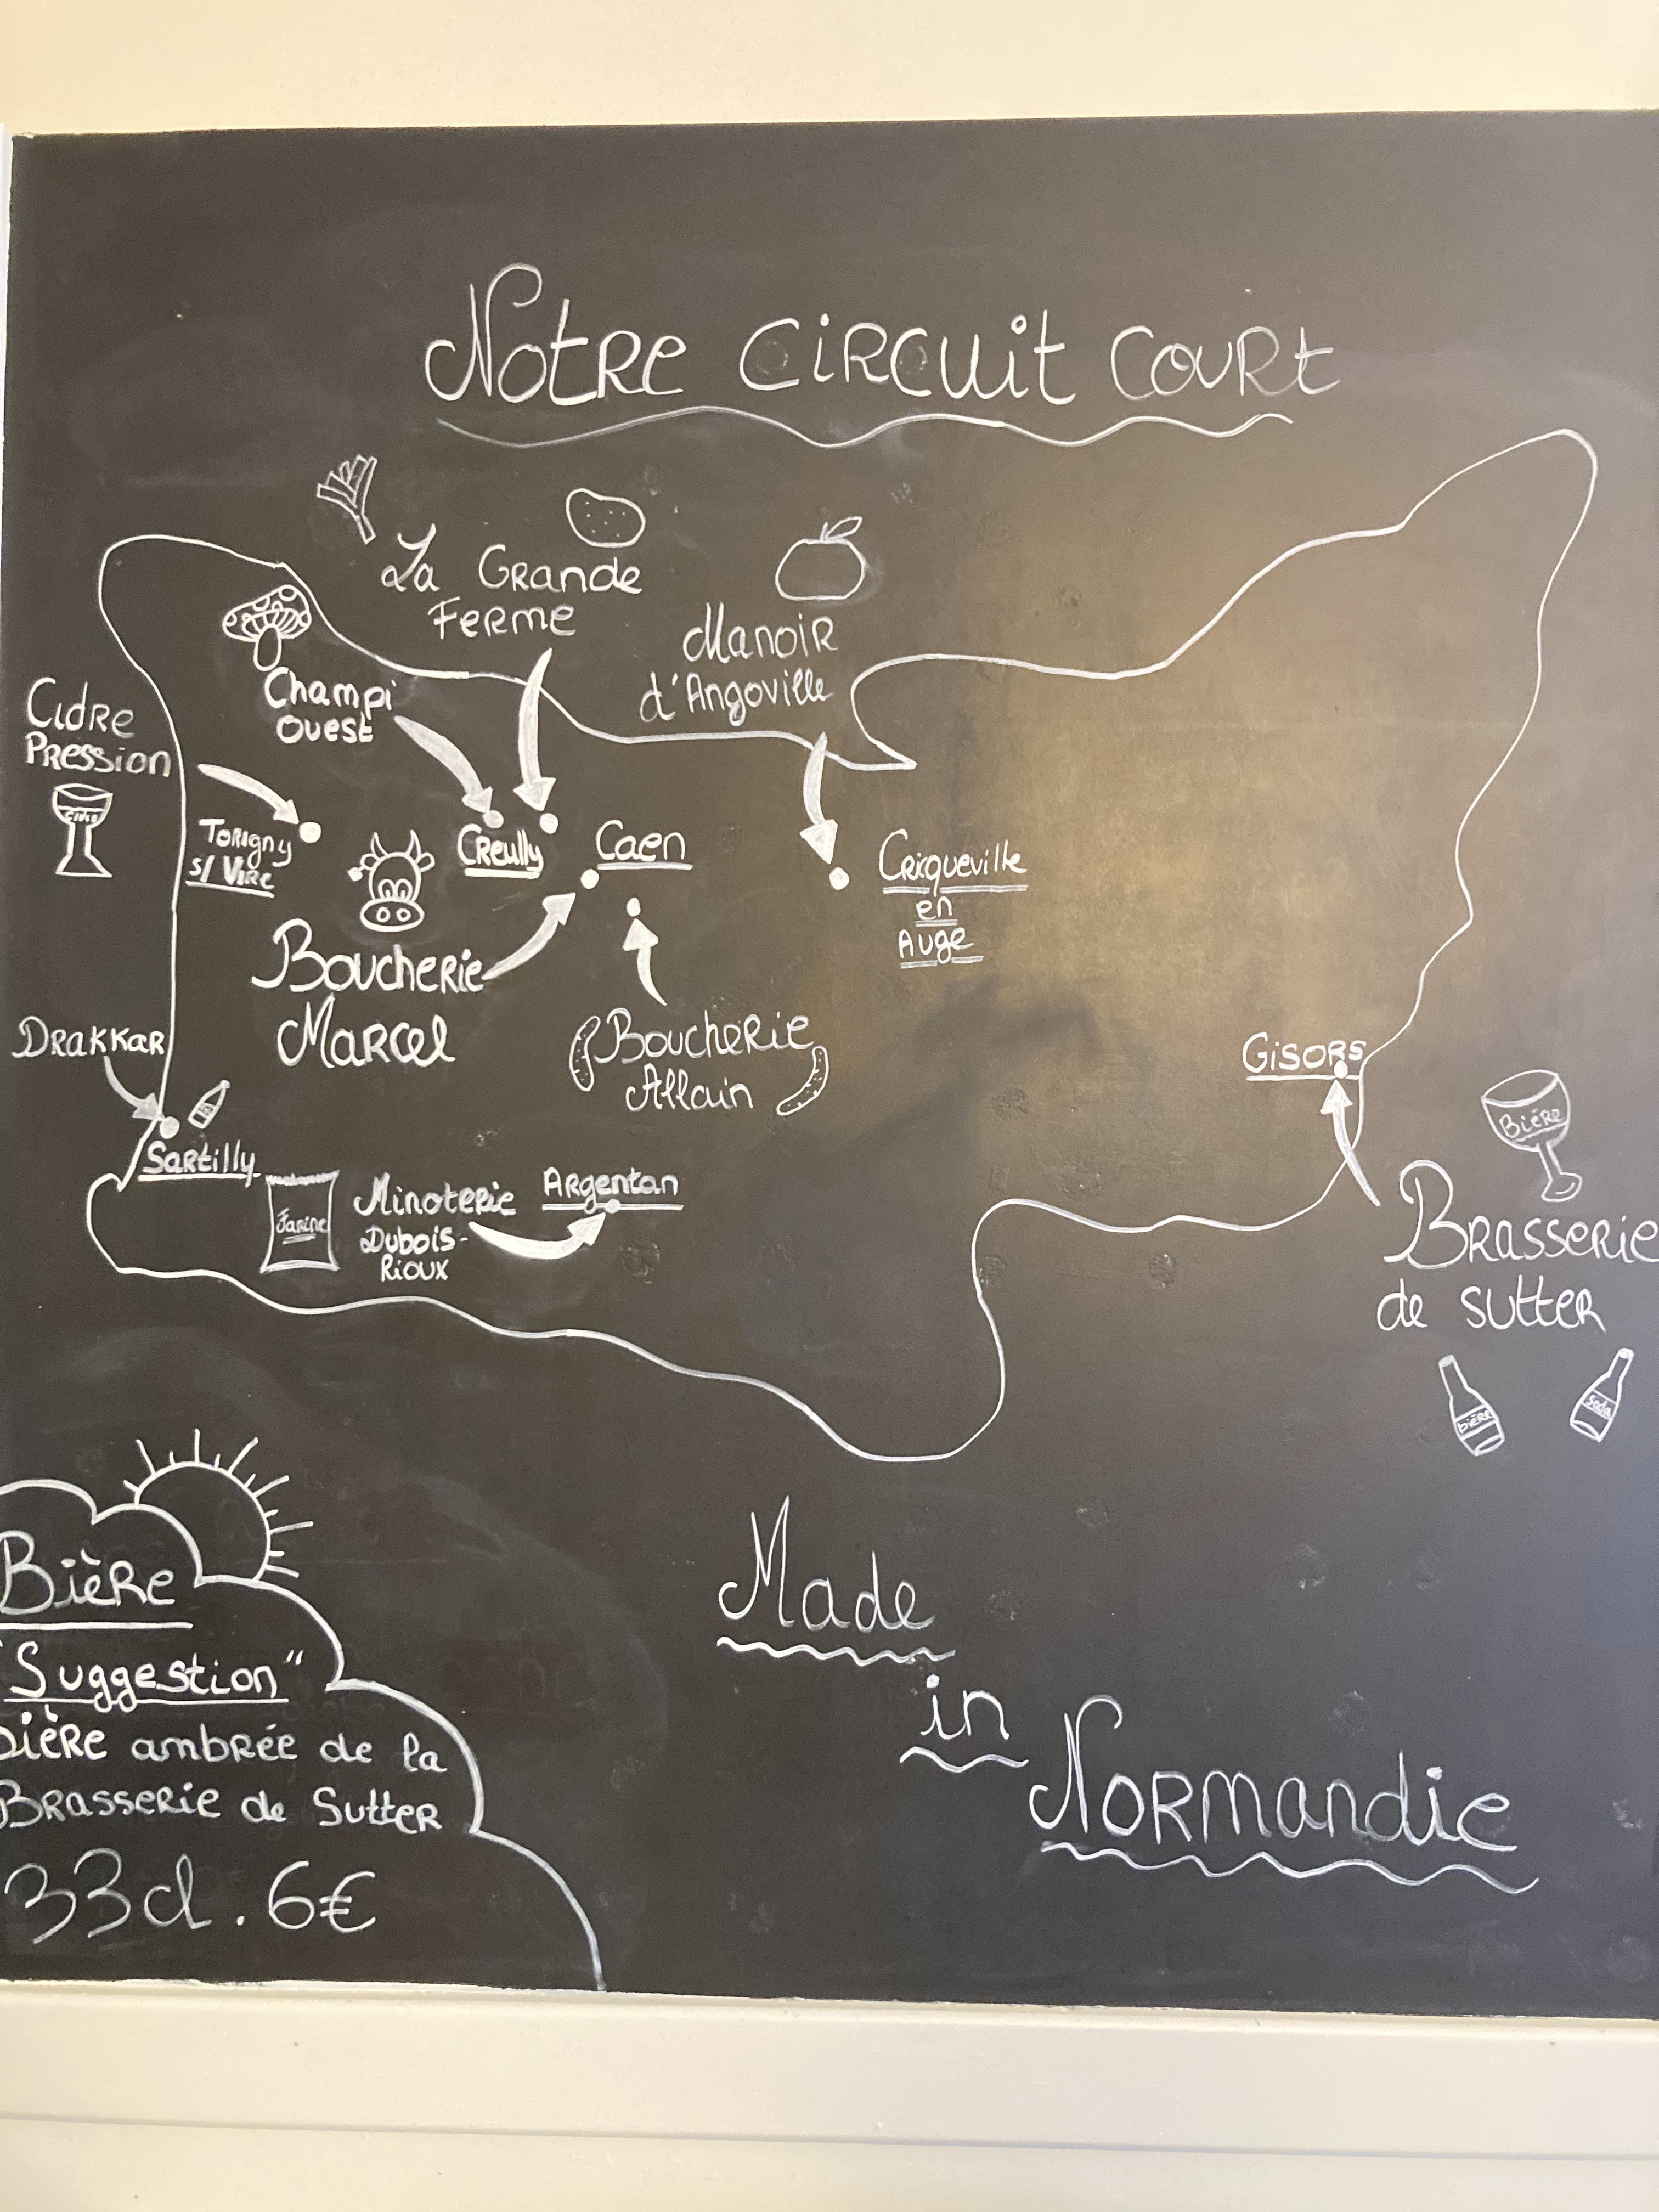 Notre Circuit Court
La Grande
Ferme
Manoir
d'Angoville
Champi
Ouest
Cidre
Pression
Cidre
Torigny
s/ Vire
Creully
Caen
Cricqueville
en
Auge
Boucherie
Marcel
Boucherie
Allain
Drakkar
Sartilly
Gisors
Bière
Farine
Minoterie
Dubois-
Rioux
Argentan
Brasserie
de Sutter
bière
Soda
Bière
"Suggestion"
bière ambrée de la
Brasserie de Sutter
33cl. 6€
Made
in
Normandie